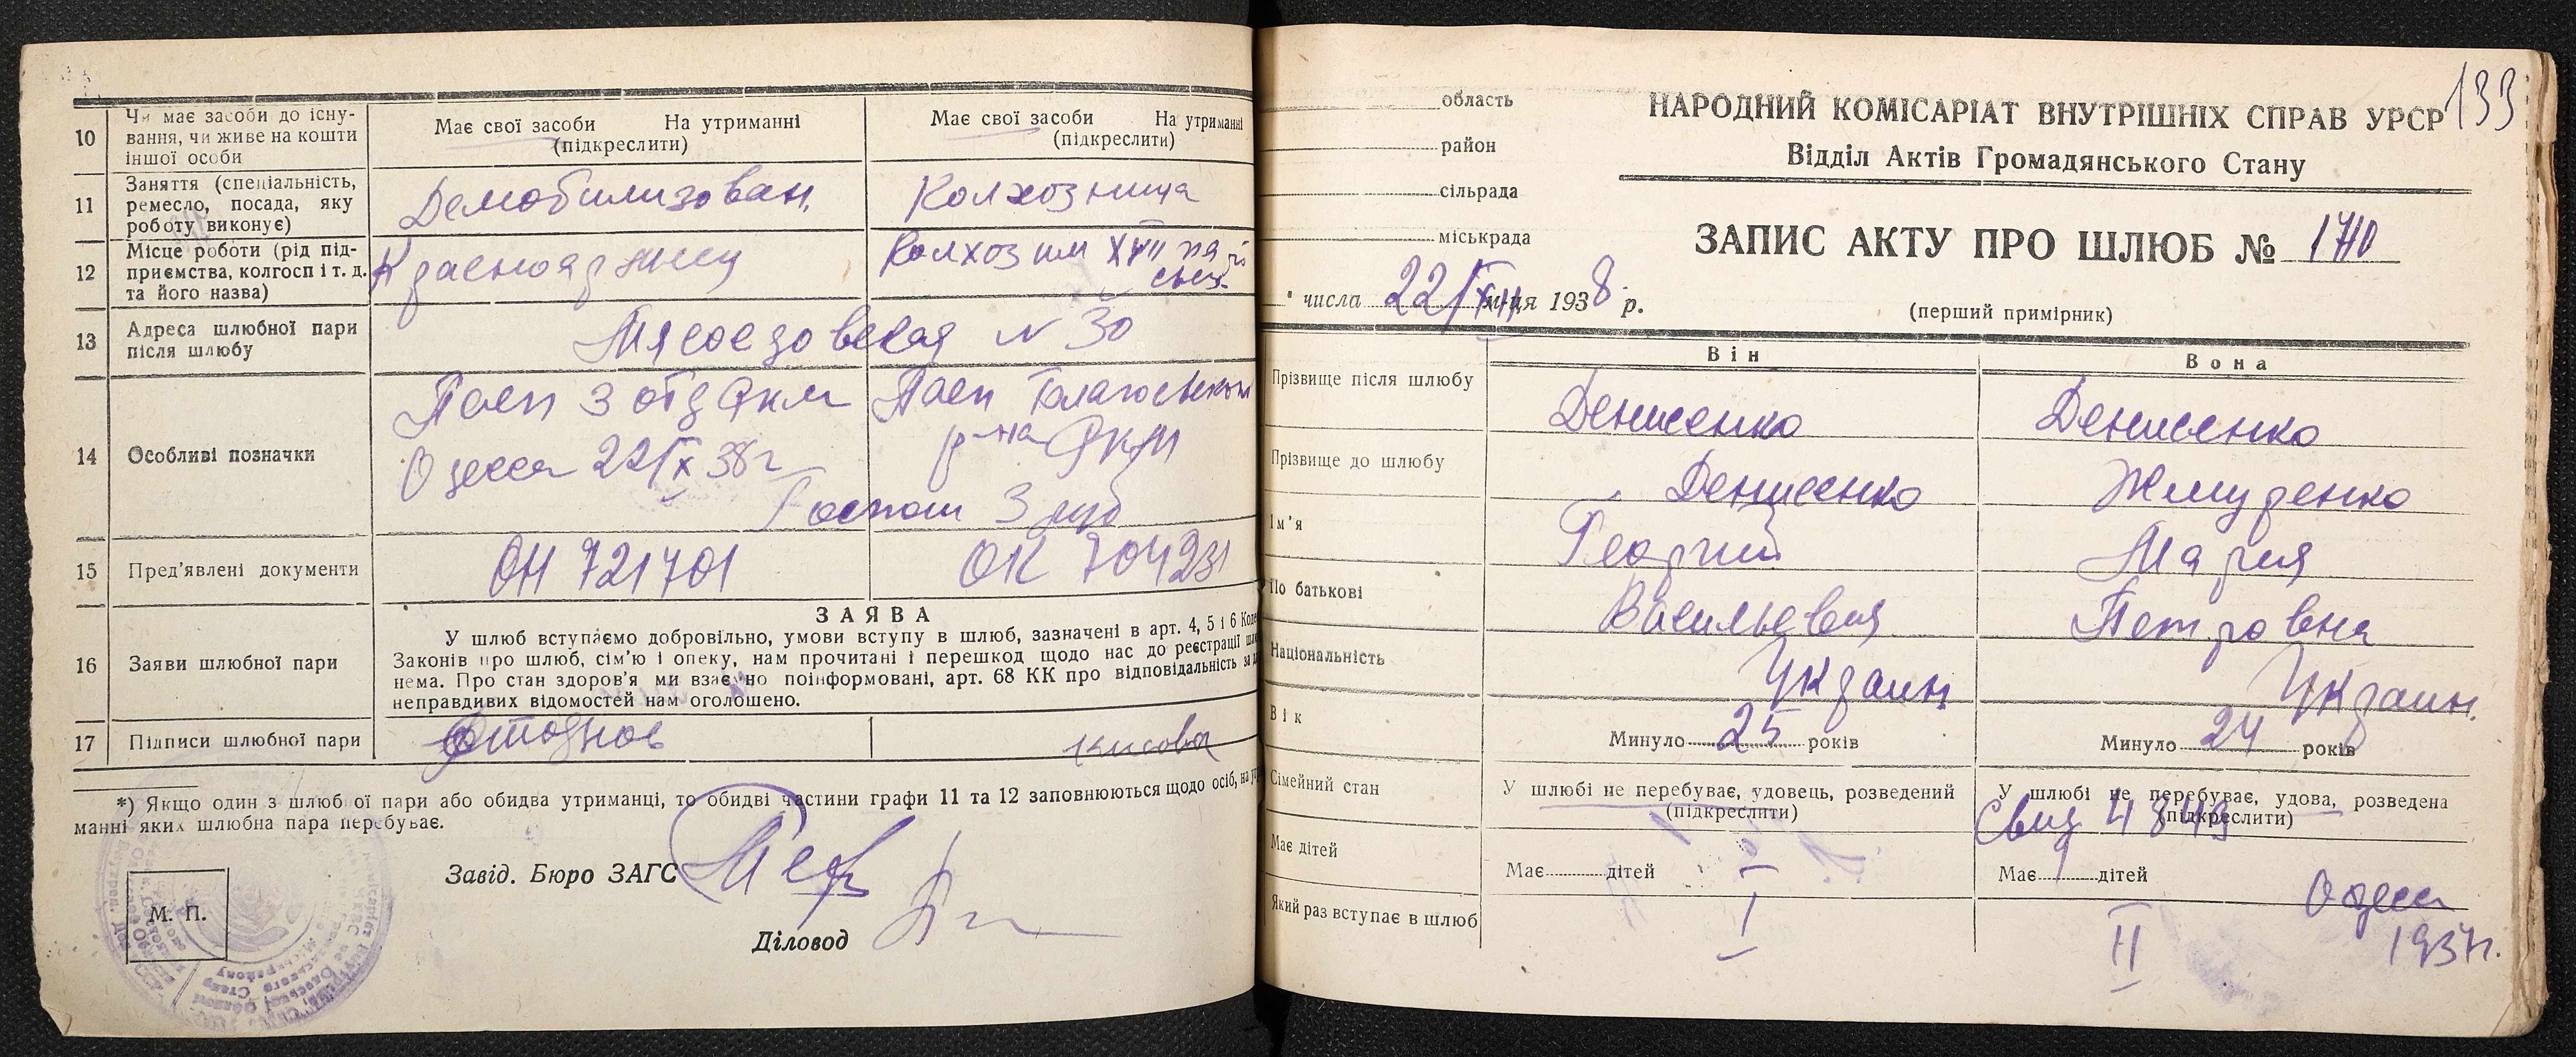 10
Чи має засоби до існу-
вання, чи живе на кошти
іншої особи
Має свої засоби На утриманні
(підкреслити)
Має свої засоби На утриманні
(підкреслити)
11
Заняття (спеціальність,
ремесло, посада, яку
роботу виконує)
Демобилизован.
Колхозница
12
Місце роботи (рід під-
приємства, колгосп і т. д.
та його назва)
Красноармеец
Колхоз им XVII парт
съез.
13
Адреса шлюбної пари
після шлюбу
Мясоедовская № 30
14
Особливі позначки
Пасп 3 отд РКМ
Одесса 22/IX 38 г
Пасп
р-на РКМ
Госпош 3 руб
15
Пред'явлені документи
ОН 721701
ОК 704231
16
Заяви шлюбної пари
ЗАЯВА
У шлюб вступаємо добровільно, умови вступу в шлюб, зазначені в арт. 4, 5 і 6
Законів про шлюб, сім'ю і опеку, нам прочитані і перешкод щодо нас до реєстрації
нема. Про стан здоров'я ми взаємно поінформовані, арт. 68 КК про відповідальність за
неправдивих відомостей нам оголошено.
17
Підписи шлюбної пари
*) Якщо один з шлюб ої пари або обидва утриманці, то обидві частини графи 11 та 12 заповнюються щодо осіб, на
манні яких шлюбна пара перебуває.
Завід. Бюро ЗАГС
М. П.
Діловод
133
область
район
сільрада
міськрада
НАРОДНИЙ КОМІСАРІАТ ВНУТРІШНІХ СПРАВ УРСР
Відділ Актів Громадянського Стану
ЗАПИС АКТУ ПРО ШЛЮБ № 1710
" числа 22/XII м-ця 1938 р.
(перший примірник)
Він
Вона
Прізвище після шлюбу
Денисенко
Денисенко
Прізвище до шлюбу
Денисенко
Жмуренко
Ім'я
Георгий
Мария
По батькові
Васильевич
Петровна
Національність
Украин
Украин.
Вік
Минуло 25 років
Минуло 24 років
Сімейний стан
У шлюбі не перебуває, удовець, розведений
(підкреслити)
У шлюбі не перебуває, удова, розведена
(підкреслити)
Свид 4849
Має дітей
Має дітей
Має дітей
Одесса
1937г.
Який раз вступає в шлюб
I
II